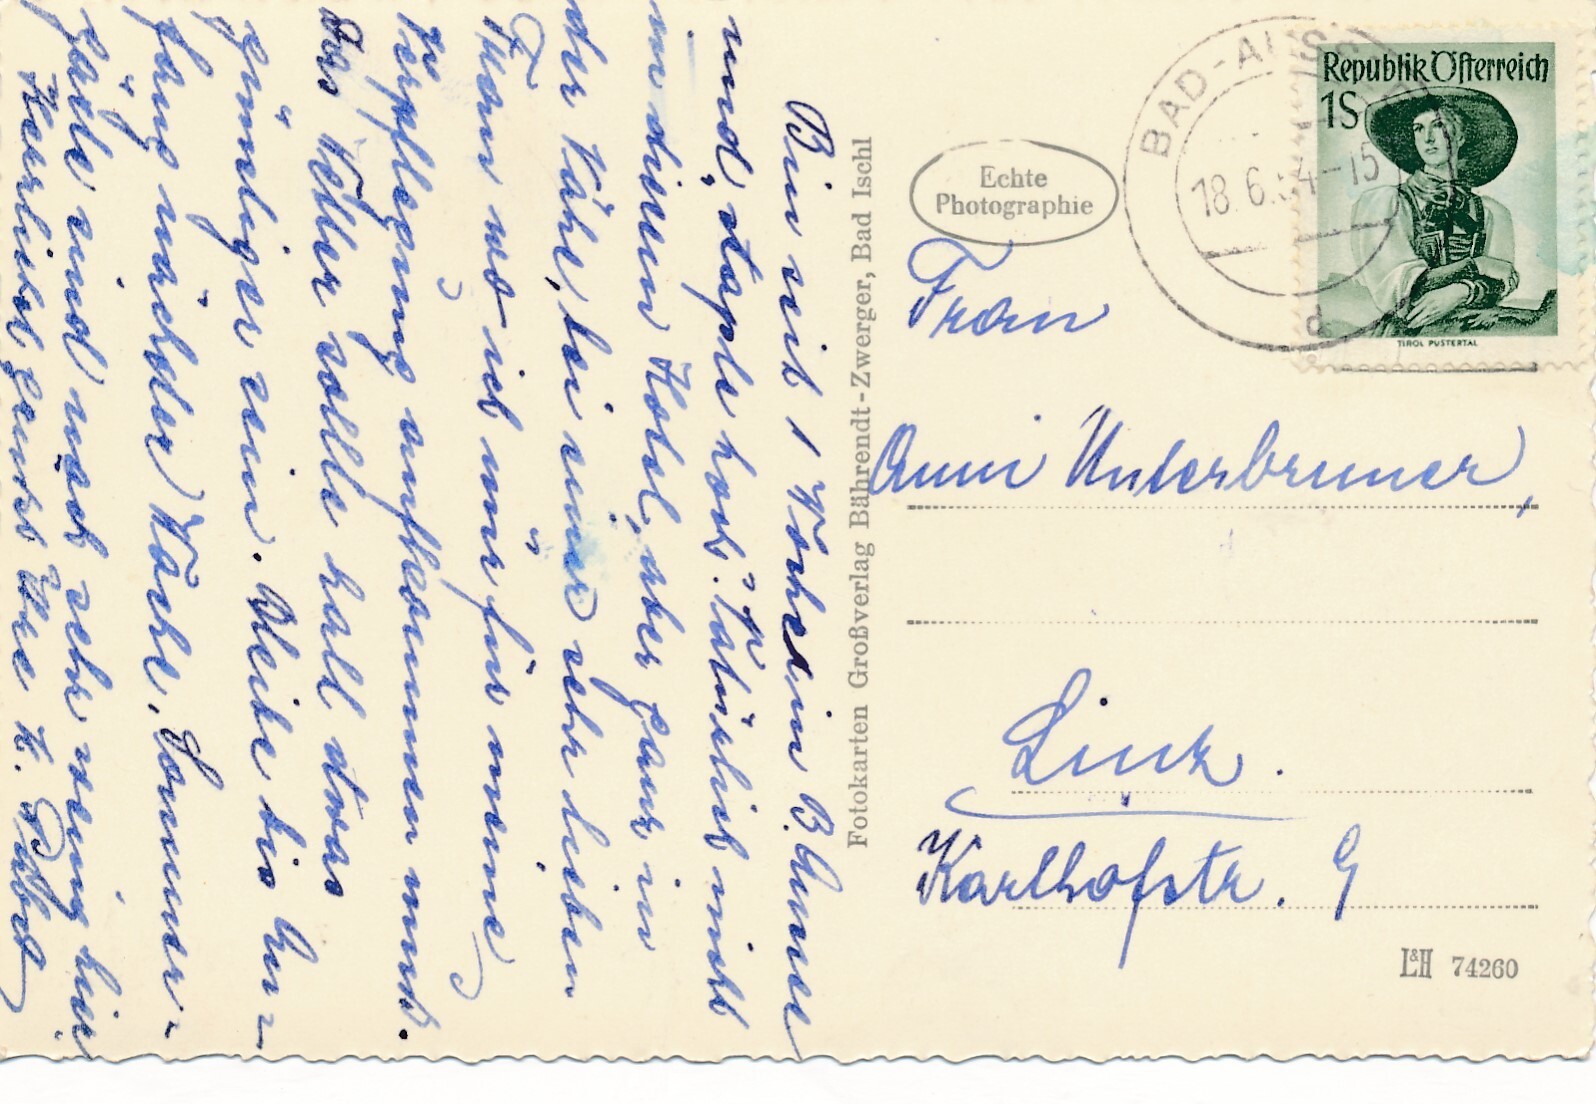 Bin seit 1 Woche in B. Aussee
und staple hoch. Natürlich nicht
in diesem Hotel, aber ganz in
der Nähe, bei einer sehr lieben
Frau wo ich nur für meine
Verpflegung aufkommen muß.
Das Wetter sollte halt etwas
günstiger sein. Bleibe bis An-
fang nächster Woche, Sommer-
gäste sind noch sehr wenig hier
Herzlichst grüßt Ihre
Fotokarten Großverlag Bährendt-Zwerger, Bad Ischl
Echte
Photographie
BAD-AUSSEE
18.6.54-15
d
Republik Österreich
1S
TIROL PUSTERTAL
Frau
Anni Unterbrunner,
Linz.
Karlhofstr. 9
L&H 74260